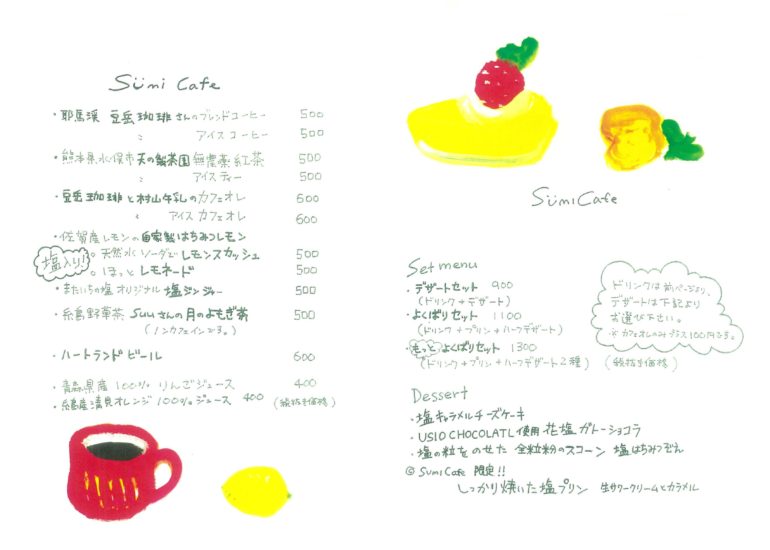 Sumi Cafe
・耶馬渓 豆岳珈琲さんのブレンドコーヒー 500
〃 アイスコーヒー 500
・熊本県水俣市天の製茶園無農薬紅茶 500
〃 アイスティー 500
・豆岳珈琲と村山牛乳のカフェオレ 600
〃 アイスカフェオレ 600
・佐賀産レモンの自家製はちみつレモン
塩入り!
天然水ソーダでレモンスカッシュ 500
ほっとレモネード 500
・またいちの塩オリジナル 塩ジンジャー 500
・糸島野草茶 Suuさんの月のよもぎ茶 500
(ノンカフェインです。)
・ハートランドビール 600
・青森県産 100% りんごジュース 400
・糸島産清見オレンジ100%ジュース 400 (税抜き価格)
Sumi Cafe
Set menu
・デザートセット 900
(ドリンク+デザート)
・よくばりセット 1100
(ドリンク+プリン+ハーフデザート)
・もっとよくばりセット 1300
(ドリンク+プリン+ハーフデザート2種) (税抜き価格)
ドリンクは前ページより、
デザートは下記より
お選び下さい。
※カフェオレのみプラス100円です。
Dessert
・塩キャラメルチーズケーキ
・USIO CHOCOLATL使用 花塩ガトーショコラ
・塩の粒をのせた 全粒粉のスコーン 塩はちみつ添え
◎ Sumi Cafe 限定!!
しっかり焼いた塩プリン 生サワークリームとカラメル